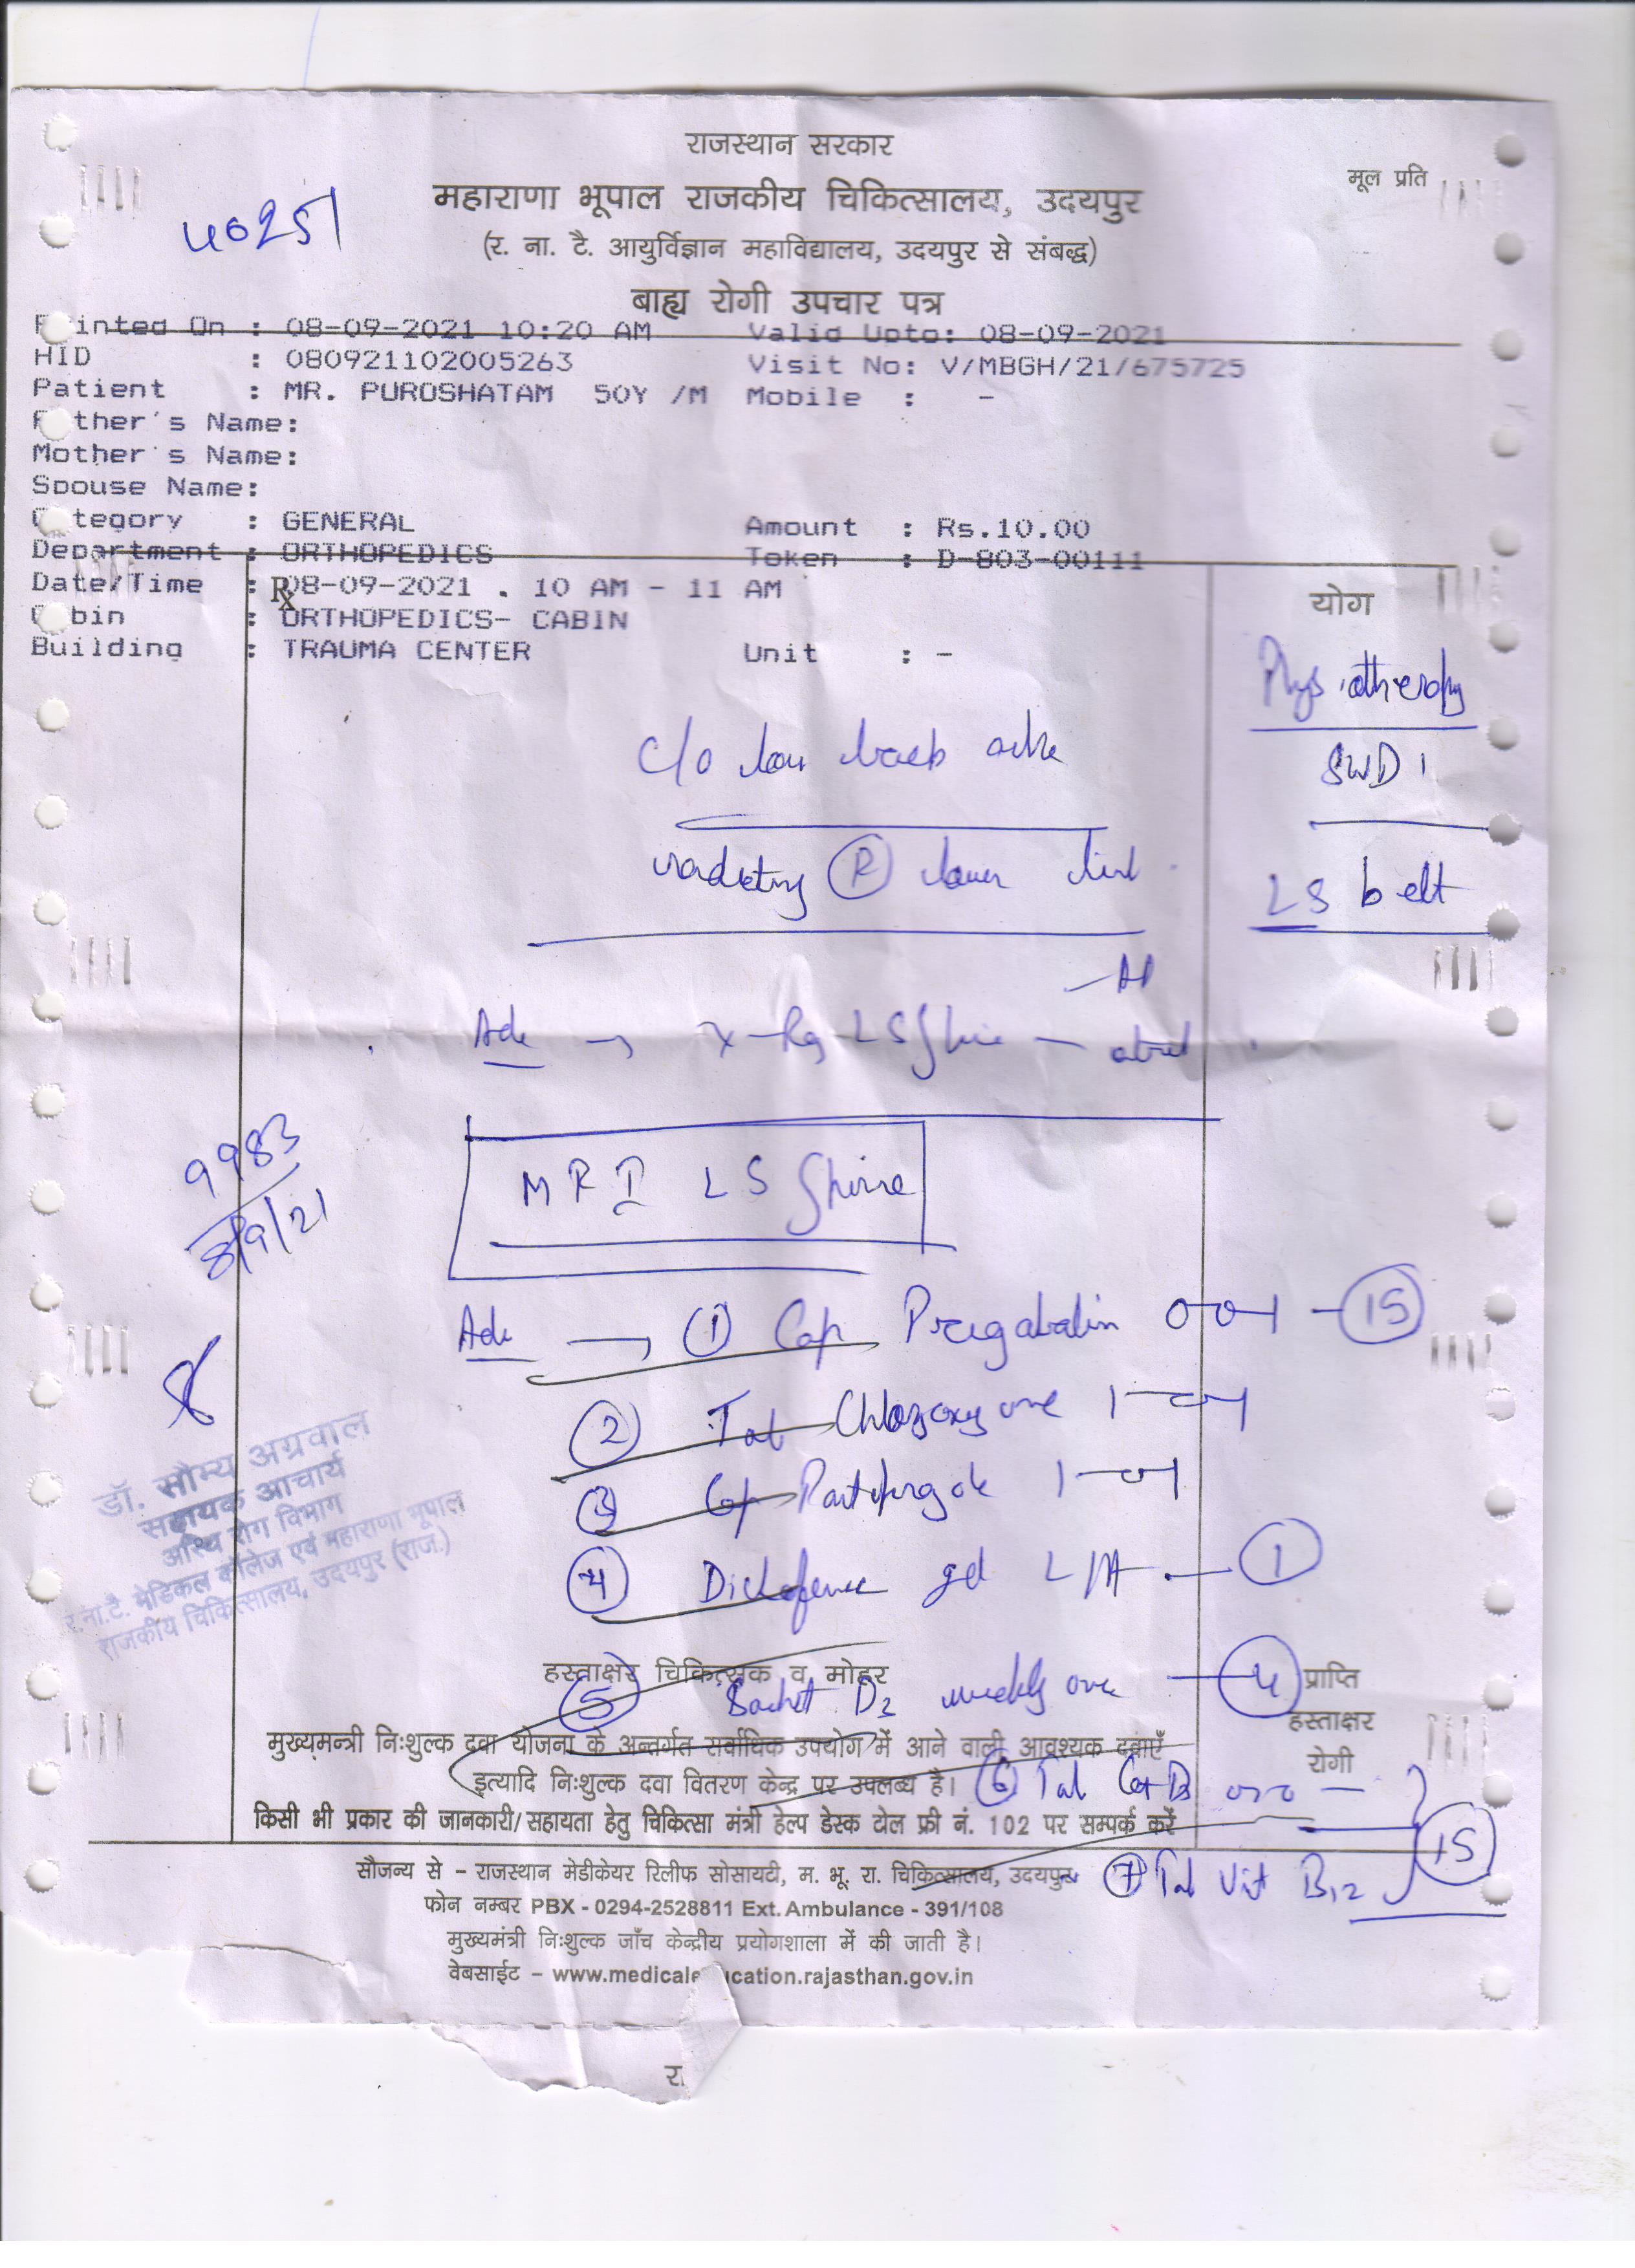 राजस्थान सरकार
मूल प्रति
महाराणा भूपाल राजकीय चिकित्सालय, उदयपुर
40251
(र. ना. टै. आयुर्विज्ञान महाविद्यालय, उदयपुर से संबद्ध)
बाह्य रोगी उपचार पत्र
Printed On : 08-09-2021 10:20 AM Valid Upto: 08-09-2021
HID : 080921102005263 Visit No: V/MBGH/21/675725
Patient : MR. PUROSHATAM 50Y /M Mobile : -
Father's Name:
Mother's Name:
Spouse Name:
Category : GENERAL Amount : Rs.10.00
Department : ORTHOPEDICS Token : D-803-00111
Date/Time : 08-09-2021 . 10 AM - 11 AM
Rx
योग
Cabin : ORTHOPEDICS- CABIN
Building : TRAUMA CENTER Unit : -
Physiotherapy
SWD
c/o low back ache
radiating (R) lower limb
LS belt
Adv → X-Ray LS Spine -
MRI LS Spine
9983
8/9/21
Adv → (1) Cap Pregabalin 0-0-1 - (15)
(2) Tab Chlorzoxazone 1-0-1
(3) Cap Pantoprazole 1-0-1
(4) Diclofenac gel L/A - (1)
डॉ. सौम्य अग्रवाल
सहायक आचार्य
अस्थि रोग विभाग
र.ना.टै. मेडिकल कॉलेज एवं महाराणा भूपाल
राजकीय चिकित्सालय, उदयपुर (राज.)
हस्ताक्षर चिकित्सक व मोहर
(5) Sachet D3 weekly once - (4)
प्राप्ति
हस्ताक्षर
रोगी
मुख्यमन्त्री निःशुल्क दवा योजना के अन्तर्गत सर्वाधिक उपयोग में आने वाली आवश्यक दवाएँ
इत्यादि निःशुल्क दवा वितरण केन्द्र पर उपलब्ध है।
(6) Tab Cal+D3 0-1-0
किसी भी प्रकार की जानकारी/सहायता हेतु चिकित्सा मंत्री हेल्प डेस्क टोल फ्री नं. 102 पर सम्पर्क करें
(15)
सौजन्य से - राजस्थान मेडीकेयर रिलीफ सोसायटी, म. भू. रा. चिकित्सालय, उदयपुर
(7) Tab Vit B12
फोन नम्बर PBX - 0294-2528811 Ext. Ambulance - 391/108
मुख्यमंत्री निःशुल्क जाँच केन्द्रीय प्रयोगशाला में की जाती है।
वेबसाईट - www.medicale ucation.rajasthan.gov.in